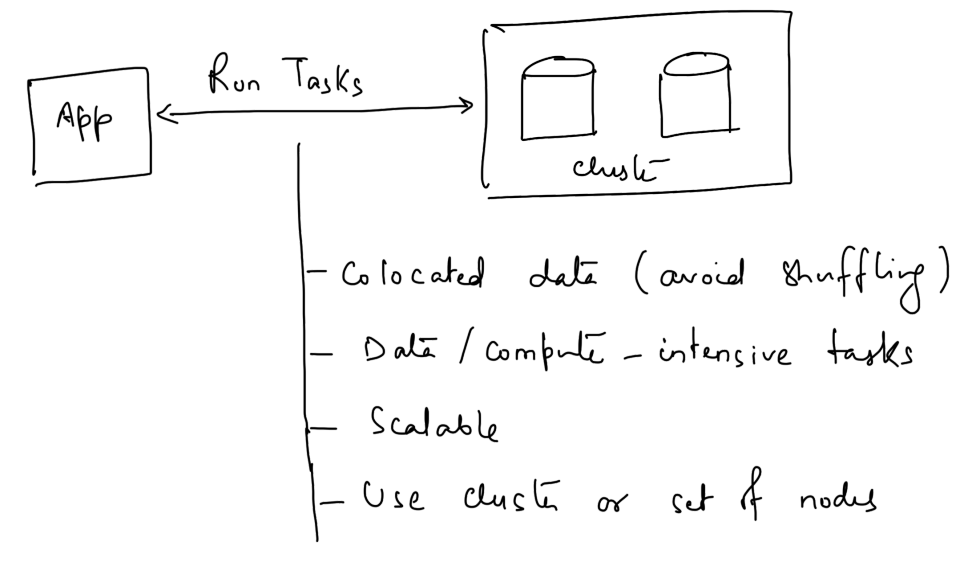 Run Tasks
App
cluster
- Colocated data (avoid shuffling)
- Data / compute - intensive tasks
- Scalable
- Use cluster or set of nodes